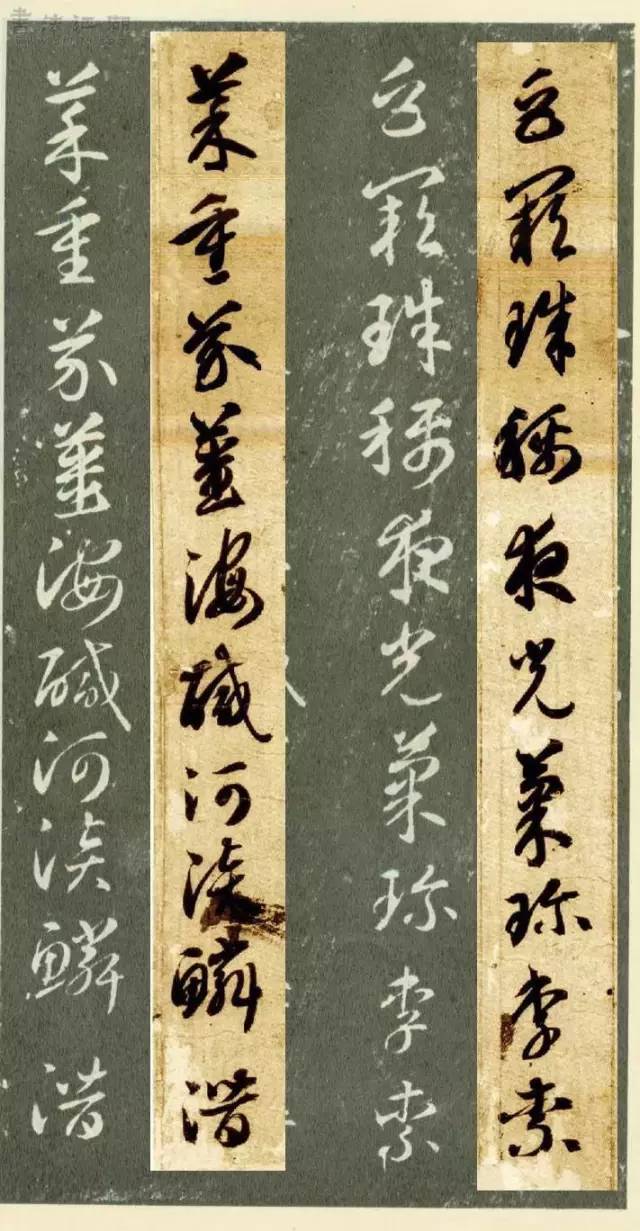 巨闕珠稱夜光菓珍李柰
巨闕珠稱夜光菓珍李柰
菜重芥薑海醎河淡鱗潛
菜重芥薑海醎河淡鱗潛
書法江湖